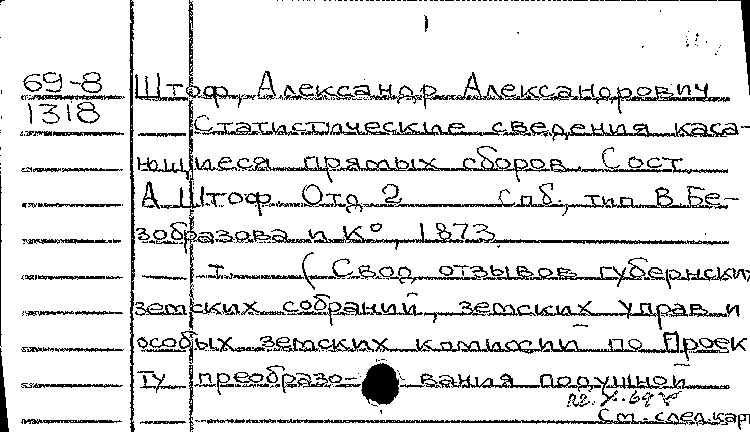 1
69-8 Штоф, Александр Александрович
1318 Статистические сведения каса-
ющиеся прямых сборов. Сост.
А. Штоф. Отд. 2 Спб., тип. В. Бе-
зобразова и К°, 1873.
т. (Свод отзывов губернских
земских собраний, земских управ и
особых земских комиссий по Проек
ту преобразо- вания подушной
См. след. кар